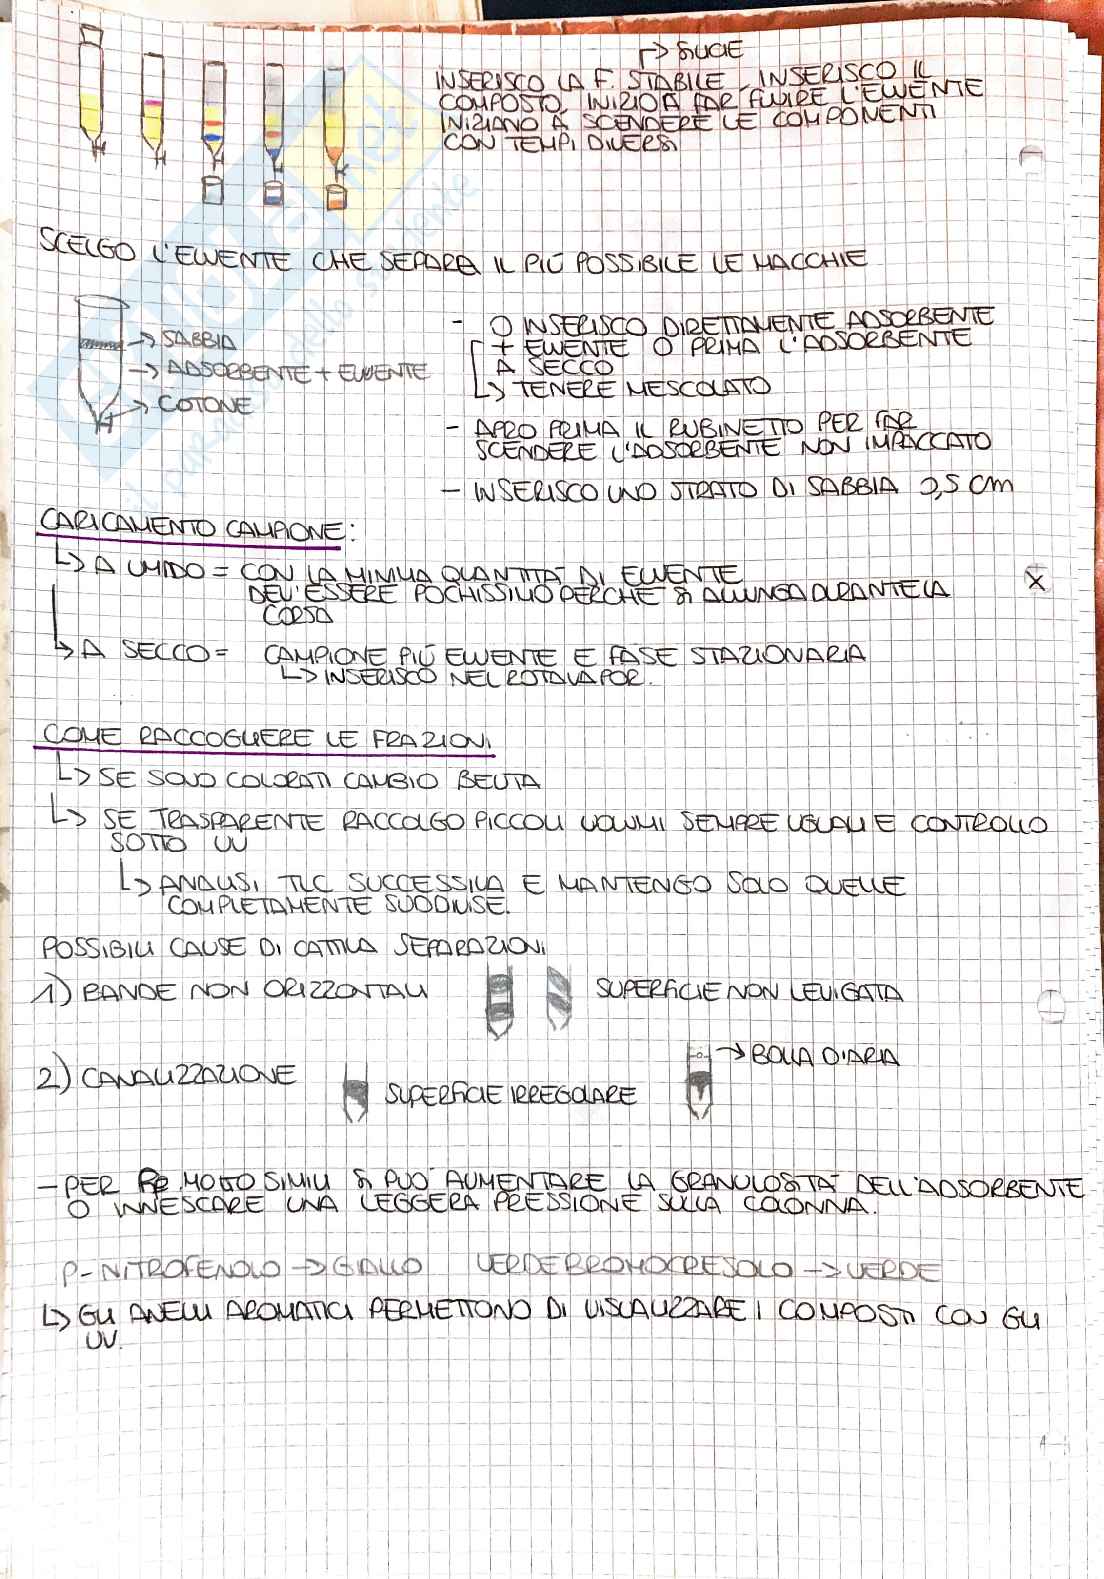 → SILICE
INSERISCO LA F. STABILE, INSERISCO IL
COMPOSTO, INIZIO A FAR FLUIRE L'ELUENTE
INIZIANO A SCENDERE LE COMPONENTI
CON TEMPI DIVERSI
SCELGO L'ELUENTE CHE SEPARA IL PIÙ POSSIBILE LE MACCHIE
→ SABBIA
→ ADSORBENTE + ELUENTE
→ COTONE
- O INSERISCO DIRETTAMENTE ADSORBENTE
+ ELUENTE O PRIMA L'ADSORBENTE
A SECCO
↳ TENERE MESCOLATO
- APRO PRIMA IL RUBINETTO PER FAR
SCENDERE L'ADSORBENTE NON IMPACCATO
- INSERISCO UNO STRATO DI SABBIA 0,5 cm
CARICAMENTO CAMPIONE:
↳ A UMIDO = CON LA MINIMA QUANTITÀ DI ELUENTE
DEV'ESSERE POCHISSIMO PERCHÉ SI ALLUNGA DURANTE LA
CORSA
↳ A SECCO = CAMPIONE PIÙ ELUENTE E FASE STAZIONARIA
↳ INSERISCO NEL ROTAVAPOR.
COME RACCOGLIERE LE FRAZIONI
↳ SE SONO COLORATI CAMBIO BEUTA
↳ SE TRASPARENTE RACCOLGO PICCOLI VOLUMI SEMPRE UGUALI E CONTROLLO
SOTTO UV
↳ ANALISI TLC SUCCESSIVA E MANTENGO SOLO QUELLE
COMPLETAMENTE SUDDIVISE.
POSSIBILI CAUSE DI CATTIVA SEPARAZIONI
1) BANDE NON ORIZZONTALI SUPERFICIE NON LEVIGATA
→ BOLLA D'ARIA
2) CANALIZZAZIONE SUPERFICIE IRREGOLARE
- PER MOLTO SIMILI SI PUÒ AUMENTARE LA GRANULOSITÀ DELL'ADSORBENTE
O INNESCARE UNA LEGGERA PRESSIONE SULLA COLONNA.
P-NITROFENOLO → GIALLO VERDE BROMOCRESOLO → VERDE
↳ GLI ANELLI AROMATICI PERMETTONO DI VISUALIZZARE I COMPOSTI CON GLI
UV.